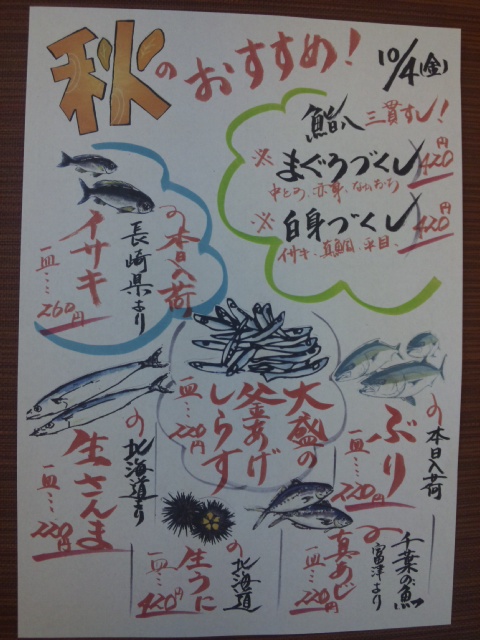 秋のおすすめ!
10/4(金)
鮨八 三貫すし!
※まぐろづくし 420円
中とろ、赤身、
※白身づくし 420円
イサキ、真鯛、平目、
本日入荷
長崎県より
イサキ
一皿…260円
大盛の
釜あげ
しらす
一皿…220円
本日入荷
ぶり
一皿…220円
北海道より
生さんま
一皿…220円
北海道
生うに
一皿…420円
千葉の魚
富津より
真あじ
一皿…220円